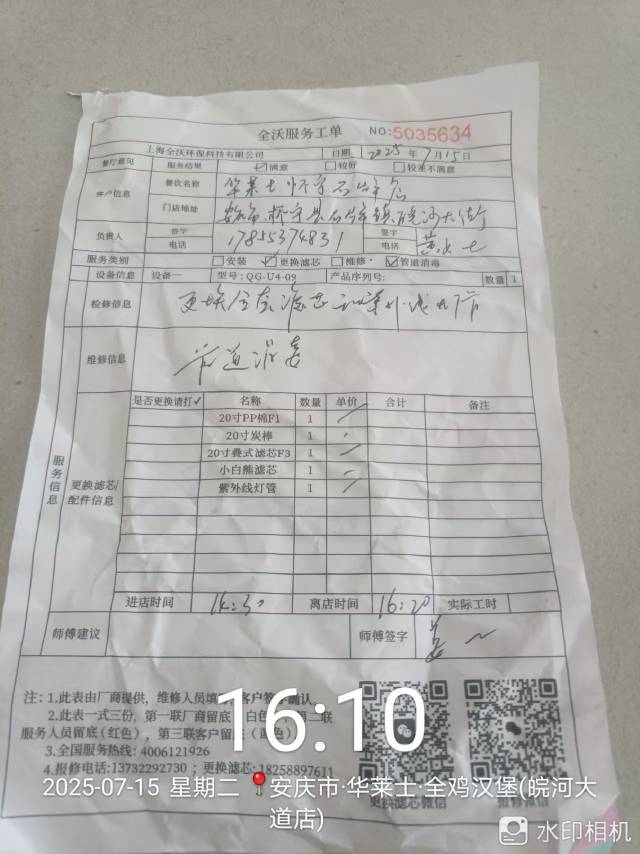 全沃服务工单 NO:5035634
上海全沃环保科技有限公司 日期 2025年7月15日
餐厅意见 服务结果 ☑满意 □较好 □较差不满意
客户信息 餐饮名称 华莱士怀宁石牌店
门店地址 怀宁县石牌镇皖河大街
负责人 签字 电话 17855374831 签字 电话
服务类别 □安装 ☑更换滤芯 □维修 ☑管道消毒
设备信息 设备一 型号:QG-U4-09 产品序列号: 数量 1
检修信息 更换全套滤芯
维修信息 管道消毒
服务信息
更换滤芯/配件信息
是否更换请打✓ 名称 数量 单价 合计 备注
20寸PP棉F1 1
20寸炭棒 1
20寸叠式滤芯F3 1
小白熊滤芯 1
紫外线灯管 1
进店时间 离店时间 16:20 实际工时
师傅建议 师傅签字
注:1.此表由厂商提供,维修人员填 客户签字确认
2.此表一式三份,第一联厂商留底 白色 第二联
服务人员留底(红色),第三联客户留 (蓝色)
3.全国服务热线:4006121926
4.报修电话:13732292730;更换滤芯:18258897611
更换滤芯微信 报修微信
16:10
2025-07-15 星期二 安庆市·华莱士·全鸡汉堡(皖河大
道店)
水印相机